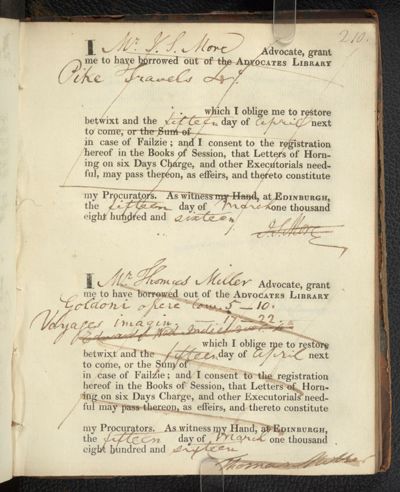 210.
I Mr. J. S. More Advocate, grant
me to have borrowed out of the ADVOCATES LIBRARY
Pike Travels 4to.
which I oblige me to restore
betwixt and the fifteen day of April next
to come, or the Sum of
in case of Failzie; and I consent to the registration
hereof in the Books of Session, that Letters of Horn-
ing on six Days Charge, and other Executorials need-
ful, may pass thereon, as effeirs, and thereto constitute
my Procurators. As witness my Hand, at EDINBURGH,
the fifteen day of March one thousand
eight hundred and sixteen
J. S. More
I Mr. Thomas Miller Advocate, grant
me to have borrowed out of the ADVOCATES LIBRARY
Goldoni opere tom. 5–10.
Voyages imagin. – 17–22.
Edwards West Indies
which I oblige me to restore
betwixt and the fifteen day of April next
to come, or the Sum of
in case of Failzie; and I consent to the registration
hereof in the Books of Session, that Letters of Horn-
ing on six Days Charge, and other Executorials need-
ful may pass thereon, as effeirs, and thereto constitute
my Procurators. As witness my Hand, at EDINBURGH,
the fifteen day of March one thousand
eight hundred and sixteen
Thomas Miller